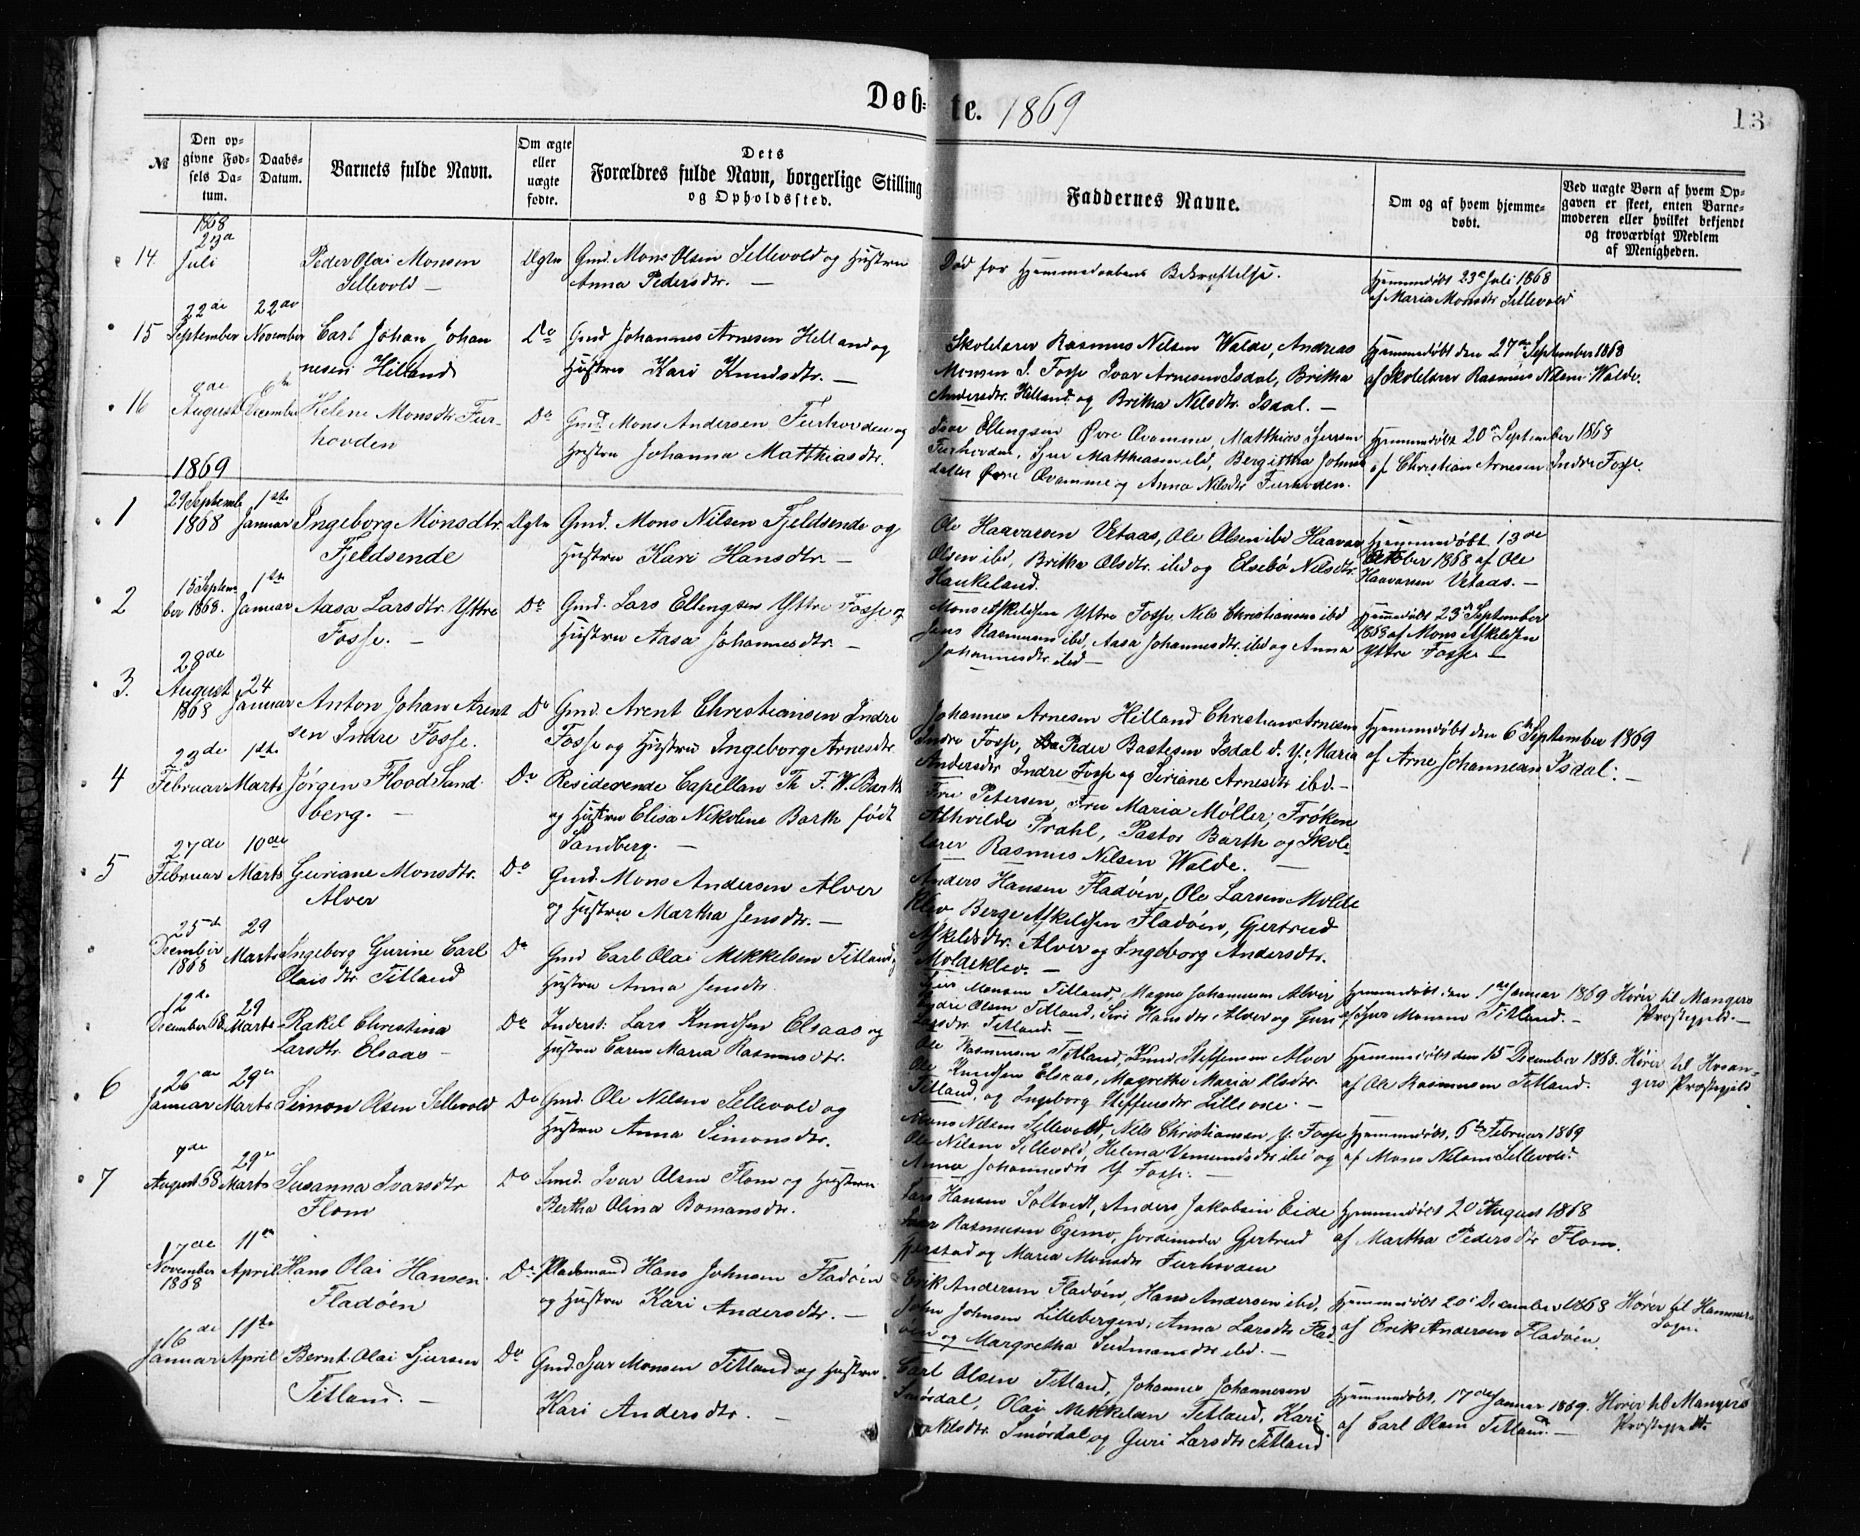 Døb-te. 1869
13
№
Den opgivne Fødsels Datum.
Daabs-Datum.
Barnets fulde Navn.
Om ægte eller uægte fødte.
Dets Forældres fulde Navn, borgerlige Stilling og Opholdssted.
Faddernes Navne.
Om og af hvem hjemmedøbt.
Ved uægte Børn af hvem Opgaven er skeet, enten Barnemoderen eller hvilket bekjendt og troværdigt Medlem af Menigheden.
1868
14 23de Juli Peder Olai Monsen Sellevold — Ægte Gmd. Mons Olsen Sellevold og Hustru
Anna Pedersdtr. —
Død før Hjemmedaabens Bekræftelse.
Hjemmedøbt 23de Juli 1868
af Maria Monsdtr Sellevold
15 22de September 22de November Carl Johan Johannesen Hilland Do Gmd Johannes Arnesen Helland og
Hustru Kari Knudsdtr. —
Skolelærer Rasmus Nilsen Walde, Andreas
Monsen I. Fosse Ivar Arnesen Isdal, Britha
Andersdtr. Hilland og Britha Nilsdtr. Isdal. —
Hjemmedøbt den 27de September 1868
af Skolelærer Rasmus Nilsen Walde.
16 August December Helene Monsdtr. Furhovden Do Gmd. Mons Andersen Furhovden og
Hustru Johanna Matthiasdtr.
Ivar Ellingsen Øvre Qvamme, Matthias Sjursen
Furhovdal, Sjur Matthiasen ibd, Bergitha Johnsdatter Øvre Qvamme og Anna Nilsdtr Furhovden.
Hjemmedøbt 20de September 1868
af Christian Arnesen Indre Fosse.
1869
1 29 Septemb 1868 1ste Januar Ingeborg Monsdtr. Fjeldsende Ægte Gmd. Mons Nilsen Fjeldsende og
Hustru Kari Hansdtr. —
Ole Haavarsen Vetaas, Ole Olsen ibd Haavar
Olsen ibd, Britha Olsdtr. ibd og Elsebø Nilsdtr.
Haukeland.
Hjemmedøbt 13de
October 1868 af Ole
Haavarsen Vetaas. —
2 15 September 1868. 1ste Januar Aasa Larsdtr. Yttre Fosse. — Do Gmd. Lars Ellingsen Yttre Fosse og
Hustru Aasa Johannesdtr. —
Mons Askeldsen Yttre Fosse, Nils Christiansen ibd
Jens Rasmusen ibd, Aasa Johannesdtr. ibd og Anna
Johannesdtr. ibd —
Hjemmedøbt 23de September
1868 af Mons Askeldsen
Yttre Fosse —
3. 28de August 1868 24 Januar Anton Johan Arentsen Indre Fosse. Do Gmd. Arent Christiansen Indre
Fosse og Hustru Ingeborg Arnesdtr.
Johannes Arnesen Hilland Christian Arnesen
Indre Fosse, Peder Bastesen Isdal d. Y., Maria
Andersdtr Indre Fosse og Siriane Arnesdtr ibd. —
Hjemmedøbt den 6te September 1869
af Arne Johannesen Isdal. —
4 23de Februar 1ste Marts Jørgen Flood Sandberg. — Do Residerende Capellan Th. F. W. Barth
og Hustru Elisa Nikoline Barth født
Sandberg. —
Fru Petersen, Fru Maria Møller, Frøken
Athvilde Prahl, Pastor Barth og Skolelærer Rasmus Nilsen Walde. —
5 27de Februar 10de Marts Guriane Monsdtr. Alver Do Gmd. Mons Andersen Alver
og Hustru Martha Jensdtr. —
Anders Hansen Fladøen, Ole Larsen Moldeklev, Berge Askeldsen Fladøen, Gjertrud
Askeldsdtr. Alver og Ingeborg Andersdtr.
Moldeklev. —
25de December 1868 29 Marts Ingeborg Gurine Carl Olaisdtr Titland Do Gmd Carl Olai Mikkelsen Titland og
Hustru Anna Jensdtr.
Sjur Monsen Titland, Magne Johannesen Alver
Endre Olsen Titland, Siri Hansdtr Alver og Guri
Larsdtr Titland. —
Hjemmedøbt den 1ste Januar 1869
af Sjur Monsen Titland. —
Hører til Mangers
Præstegjeld. —
12te December 68 29 Marts Rakel Christina Larsdtr Elsaas — Do Inderst. Lars Knudsen Elsaas og
Hustru Caren Maria Rasmusdtr.
Ole Rasmusen Titland, Knud Steffensen Alver
Ole Knudsen Elsaas, Magrethe Maria Olsdtr.
Titland, og Ingeborg Steffensdtr Lilleose. —
Hjemmedøbt den 15 December 1868.
af Ole Rasmusen Titland.
Hører til Hosangers Præstegjeld
6 26de Januar 29de Marts Simon Olsen Sellevold Do Gmd. Ole Nilsen Sellevold og
Hustru Anna Simonsdtr.
Mons Nilsen Sellevold, Nils Christiansen Y. Fosse
Ole Nilsen Sellevold, Helena Vemundsdtr ibd og
Anna Johannesdtr Y Fosse. —
Hjemmedøbt, 6te Februar 1869
af Mons Nilsen Sellevold.
7 August 68 29de Marts Susanna Ivarsdtr Flom Do Gmd. Ivar Olsen Flom og Hustru
Bertha Olina Bomansdtr.
Lars Hansen Soltvedt, Anders Jakobsen Eide
Ivar Rasmusen Egemo, Jordemoder Gjertrud
og Maria Monsdtr Furhovden
Hjemmedøbt 20 August 1868
af Martha Pedersdtr Flom.
17de November 1868 11te April Hans Olai Hansen Fladøen Do Pladsmand Hans Johnsen Fladøen
og Hustru Kari Andersdtr. —
Erik Andersen Fladøen, Hans Andersen ibd,
John Johnsen Lillebergen, Anna Larsdtr Fladøen og Margretha ibd. —
Hjemmedøbt 20de December 1868
af Erik Andersen Fladøen.
Hører til Hammers
Sogn.
16de Januar 11te April Bernt Olai Sjursen Titland. — Do Gmd. Sjur Monsen Titland og Hustru
Kari Andersdtr. —
Carl Olsen Titland, Johannes Johannesen
Smørdal, Olai Mikkelsen Titland, Kari
Smørdal og Guri Larsdtr Titland
Hjemmedøbt, 17de Januar 1869.
af Carl Olsen Titland. —
Hører til Mangers
Præstegjeld.